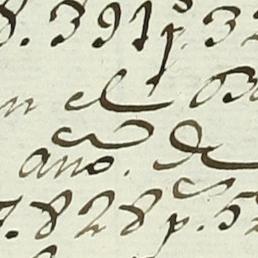 8.391p.32
en el
año. de
7.828p.5